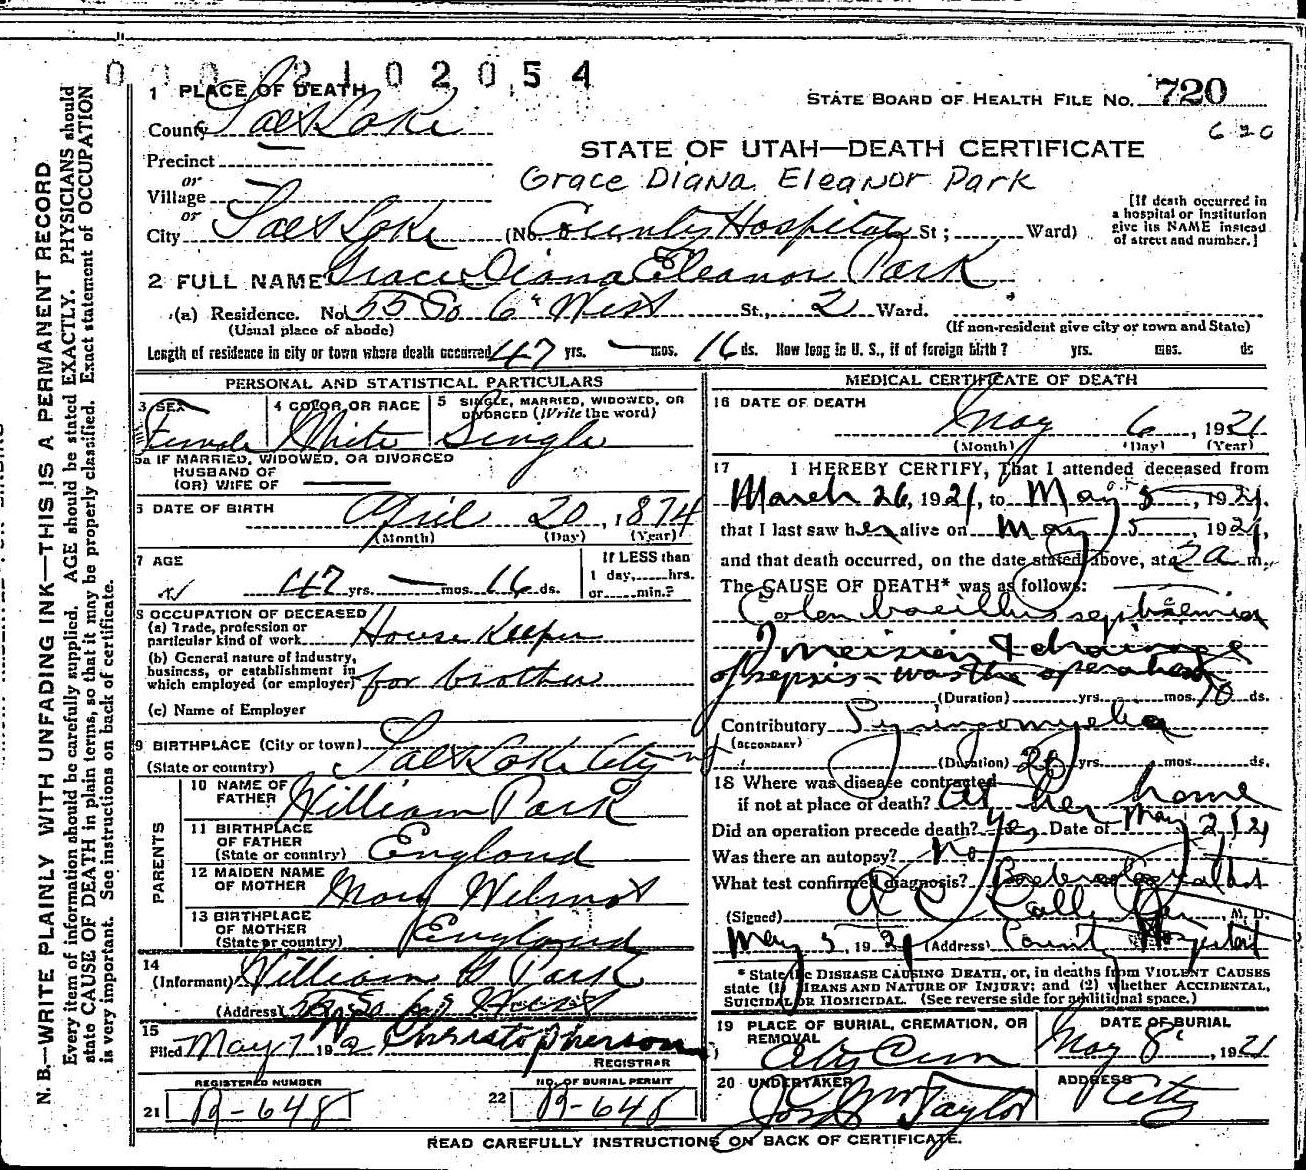 0 0 0 2 1 0 2 0 5 4
1 PLACE OF DEATH
County Salt Lake
Precinct
or
Village
or
City Salt Lake (No. County Hospital St; Ward)
STATE BOARD OF HEALTH FILE NO. 720
620
STATE OF UTAH—DEATH CERTIFICATE
Grace Diana Eleanor Park
[If death occurred in
a hospital or institution
give its NAME instead
of street and number.]
2 FULL NAME Grace Diana Eleanor Park
(a) Residence. No. 55 So 6th West St., 2 Ward.
(Usual place of abode) (If non-resident give city or town and State)
Length of residence in city or town where death occurred 47 yrs. — mos. 16 ds. How long in U. S., if of foreign birth? yrs. mos. ds
PERSONAL AND STATISTICAL PARTICULARS
3 SEX
Female
4 COLOR OR RACE
White
5 SINGLE, MARRIED, WIDOWED, OR
DIVORCED (Write the word)
Single
5a IF MARRIED, WIDOWED, OR DIVORCED
HUSBAND OF
(OR) WIFE OF
6 DATE OF BIRTH April 20, 1874
(Month) (Day) (Year)
7 AGE
47 yrs. — mos. 16 ds.
If LESS than
1 day,......hrs.
or......min.?
8 OCCUPATION OF DECEASED
(a) Trade, profession or
particular kind of work House Keeper
(b) General nature of industry,
business, or establishment in
which employed (or employer) for brother
(c) Name of Employer
9 BIRTHPLACE (City or town)
(State or country) Salt Lake City
PARENTS
10 NAME OF
FATHER William Park
11 BIRTHPLACE
OF FATHER
(State or country) England
12 MAIDEN NAME
OF MOTHER Mary Wilmot
13 BIRTHPLACE
OF MOTHER
(State or country) England
14
(Informant) William G Park
(Address) 55 So 6th West
15
Filed May 7 192 Christopherson
REGISTRAR
REGISTERED NUMBER
21 B-648
NO. OF BURIAL PERMIT
22 B-648
MEDICAL CERTIFICATE OF DEATH
16 DATE OF DEATH
May 6, 1921
(Month) (Day) (Year)
17 I HEREBY CERTIFY, That I attended deceased from
March 26, 1921, to May 5, 1921,
that I last saw her alive on May 5, 1921,
and that death occurred, on the date stated above, at 2 a m.
The CAUSE OF DEATH* was as follows:
Colon bacillus septicaemia
Incision & drainage
of sepsis - was the operation
(Duration) yrs. mos. 10 ds.
Contributory Syringomyelia
(SECONDARY)
(Duration) 20 yrs. mos. ds.
18 Where was disease contracted
if not at place of death? At her home
Did an operation precede death? Yes Date of May 2/21
Was there an autopsy? No
What test confirmed diagnosis?
(Signed) M. D.
May 5, 1921 (Address) County Hospital
* State the DISEASE CAUSING DEATH, or, in deaths from VIOLENT CAUSES
state (1) MEANS AND NATURE OF INJURY; and (2) whether ACCIDENTAL,
SUICIDAL OR HOMICIDAL. (See reverse side for additional space.)
19 PLACE OF BURIAL, CREMATION, OR
REMOVAL
City Cem
DATE OF BURIAL
May 8, 1921
20 UNDERTAKER
Jos Wm Taylor
ADDRESS
City
READ CAREFULLY INSTRUCTIONS ON BACK OF CERTIFICATE.
N. B.—WRITE PLAINLY WITH UNFADING INK—THIS IS A PERMANENT RECORD
Every item of information should be carefully supplied. AGE should be stated EXACTLY. PHYSICIANS should
state CAUSE OF DEATH in plain terms, so that it may be properly classified. Exact statement of OCCUPATION
is very important. See instructions on back of certificate.